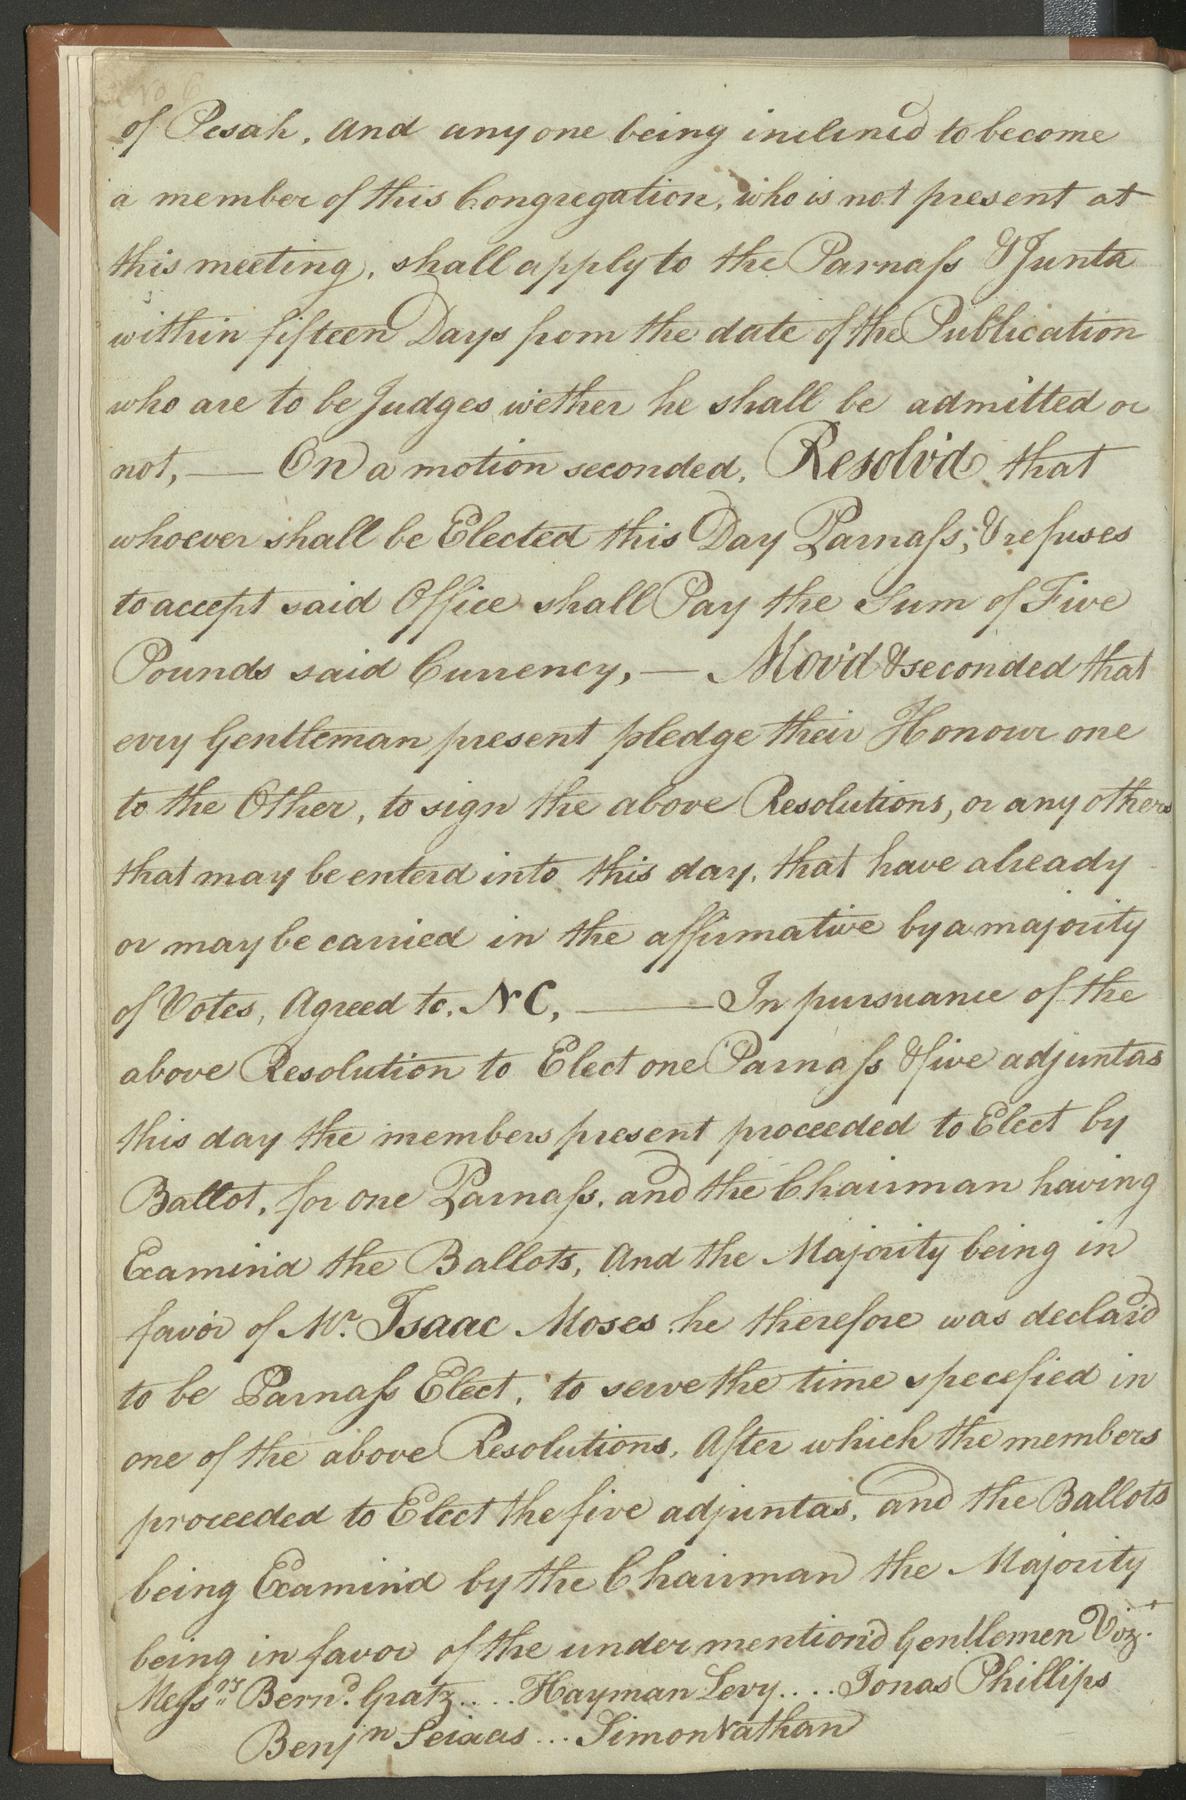 of Pesah, and any one being inclined to become
a member of this Congregation, who is not present at
this meeting, shall apply to the Parnass & Junta
within fifteen Days from the date of the Publication
who are to be Judges wether he shall be admitted or
not, — On a motion seconded, Resolv'd that
whoever shall be Elected this Day Parnass, & refuses
to accept said Office shall Pay the Sum of Five
Pounds said Currency, — Mov'd & seconded that
evry Gentleman present pledge their Honour one
to the Other, to sign the above Resolutions, or any others
that may be enterd into this day, that have already
or may be carried in the affirmative by a majority
of Votes, Agreed to, N C, — In pursuance of the
above Resolution to Elect one Parnass & five adjuntas
this day the members present proceeded to Elect by
Ballot, for one Parnass, and the Chairman having
Examin'd the Ballots, And the Majority being in
favor of Mr. Isaac Moses he therefore was declar'd
to be Parnass Elect, to serve the time specefied in
one of the above Resolutions, After which the members
proceeded to Elect the five adjuntas, and the Ballots
being Examin'd by the Chairman the Majority
being in favor of the undermention'd Gentlemen Vizt.
Messrs Bernd. Gratz.... Hayman Levy.... Jonas Phillips
Benjn Seixas... Simon Nathan